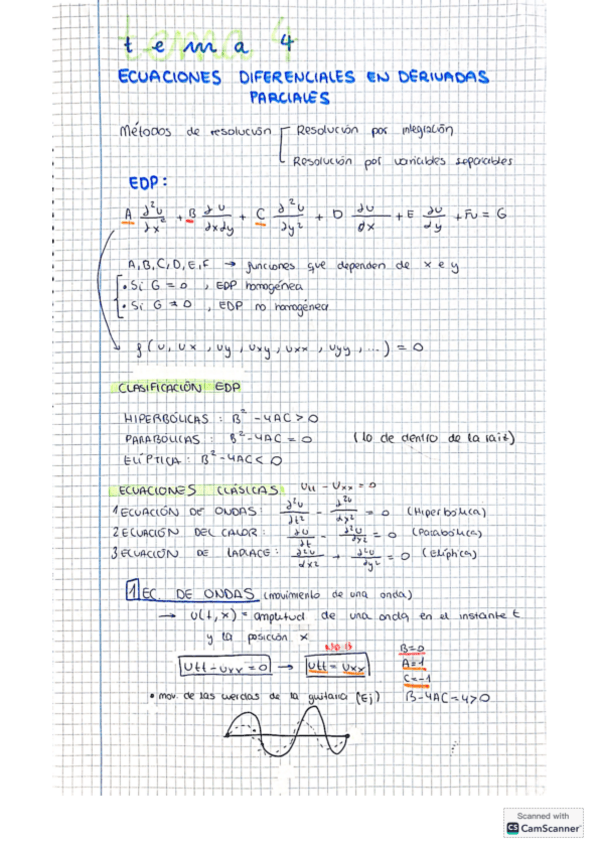 tema 4
ECUACIONES DIFERENCIALES EN DERIVADAS
PARCIALES
Métodos de resolución Resolución por integración
Resolución por variables separables
EDP:
A ∂²u/∂x² + B ∂u/∂x∂y + C ∂²u/∂y² + D ∂u/∂x + E ∂u/∂y + Fu = G
A, B, C, D, E, F → funciones que dependen de x e y
• Si G = 0 , EDP homogénea
• Si G ≠ 0 , EDP no homogénea
f (u, ux, uy, uxy, uxx, uyy, ...) = 0
CLASIFICACIÓN EDP
HIPERBÓLICAS : B² - 4AC > 0
PARABÓLICAS : B² - 4AC = 0 (lo de dentro de la raíz)
ELÍPTICA : B² - 4AC < 0
ECUACIONES CLÁSICAS Utt - Uxx = 0
1 ECUACIÓN DE ONDAS : ∂²u/∂t² - ∂²u/∂x² = 0 (Hiperbólica)
2 ECUACIÓN DEL CALOR : ∂u/∂t - ∂²u/∂x² = 0 (Parabólica)
3 ECUACIÓN DE LAPLACE : ∂²u/∂x² + ∂²u/∂y² = 0 (elíptica)
1 EC. DE ONDAS (movimiento de una onda)
→ u(t, x) = amplitud de una onda en el instante t
y la posición x
no B
Utt - Uxx = 0 → Utt = Uxx
B=0
A=1
C=-1
• mov. de las cuerdas de la guitarra (Ej) B-4AC=4>0
Scanned with
CS CamScanner